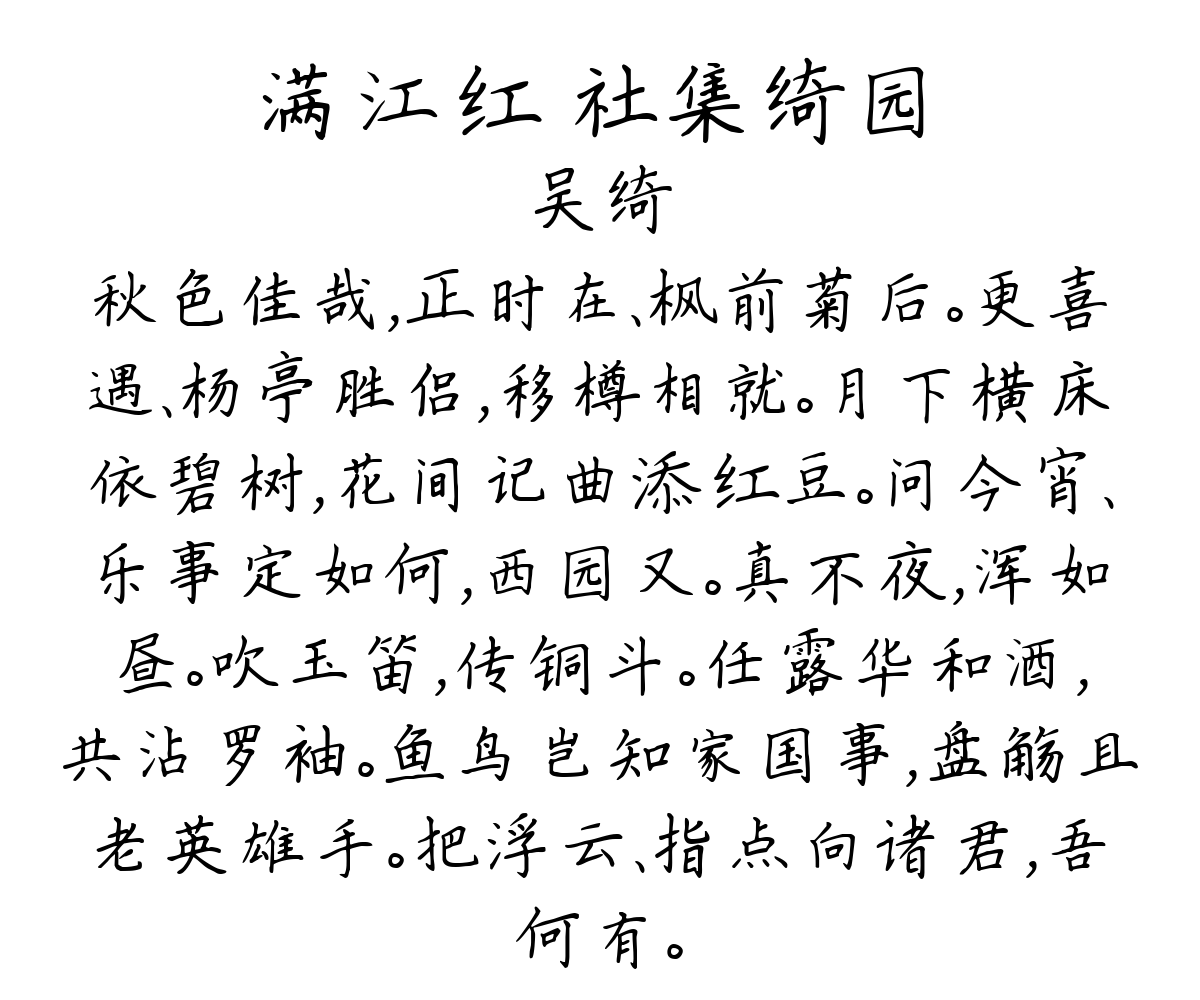 满江红 社集绮园
吴绮
秋色佳哉,正时在、枫前菊后。更喜
遇、杨亭胜侣,移樽相就。月下横床
依碧树,花间记曲添红豆。问今宵、
乐事定如何,西园又。真不夜,浑如
昼。吹玉笛,传铜斗。任露华和酒,
共沾罗袖。鱼鸟岂知家国事,盘觞且
老英雄手。把浮云、指点向诸君,吾
何有。